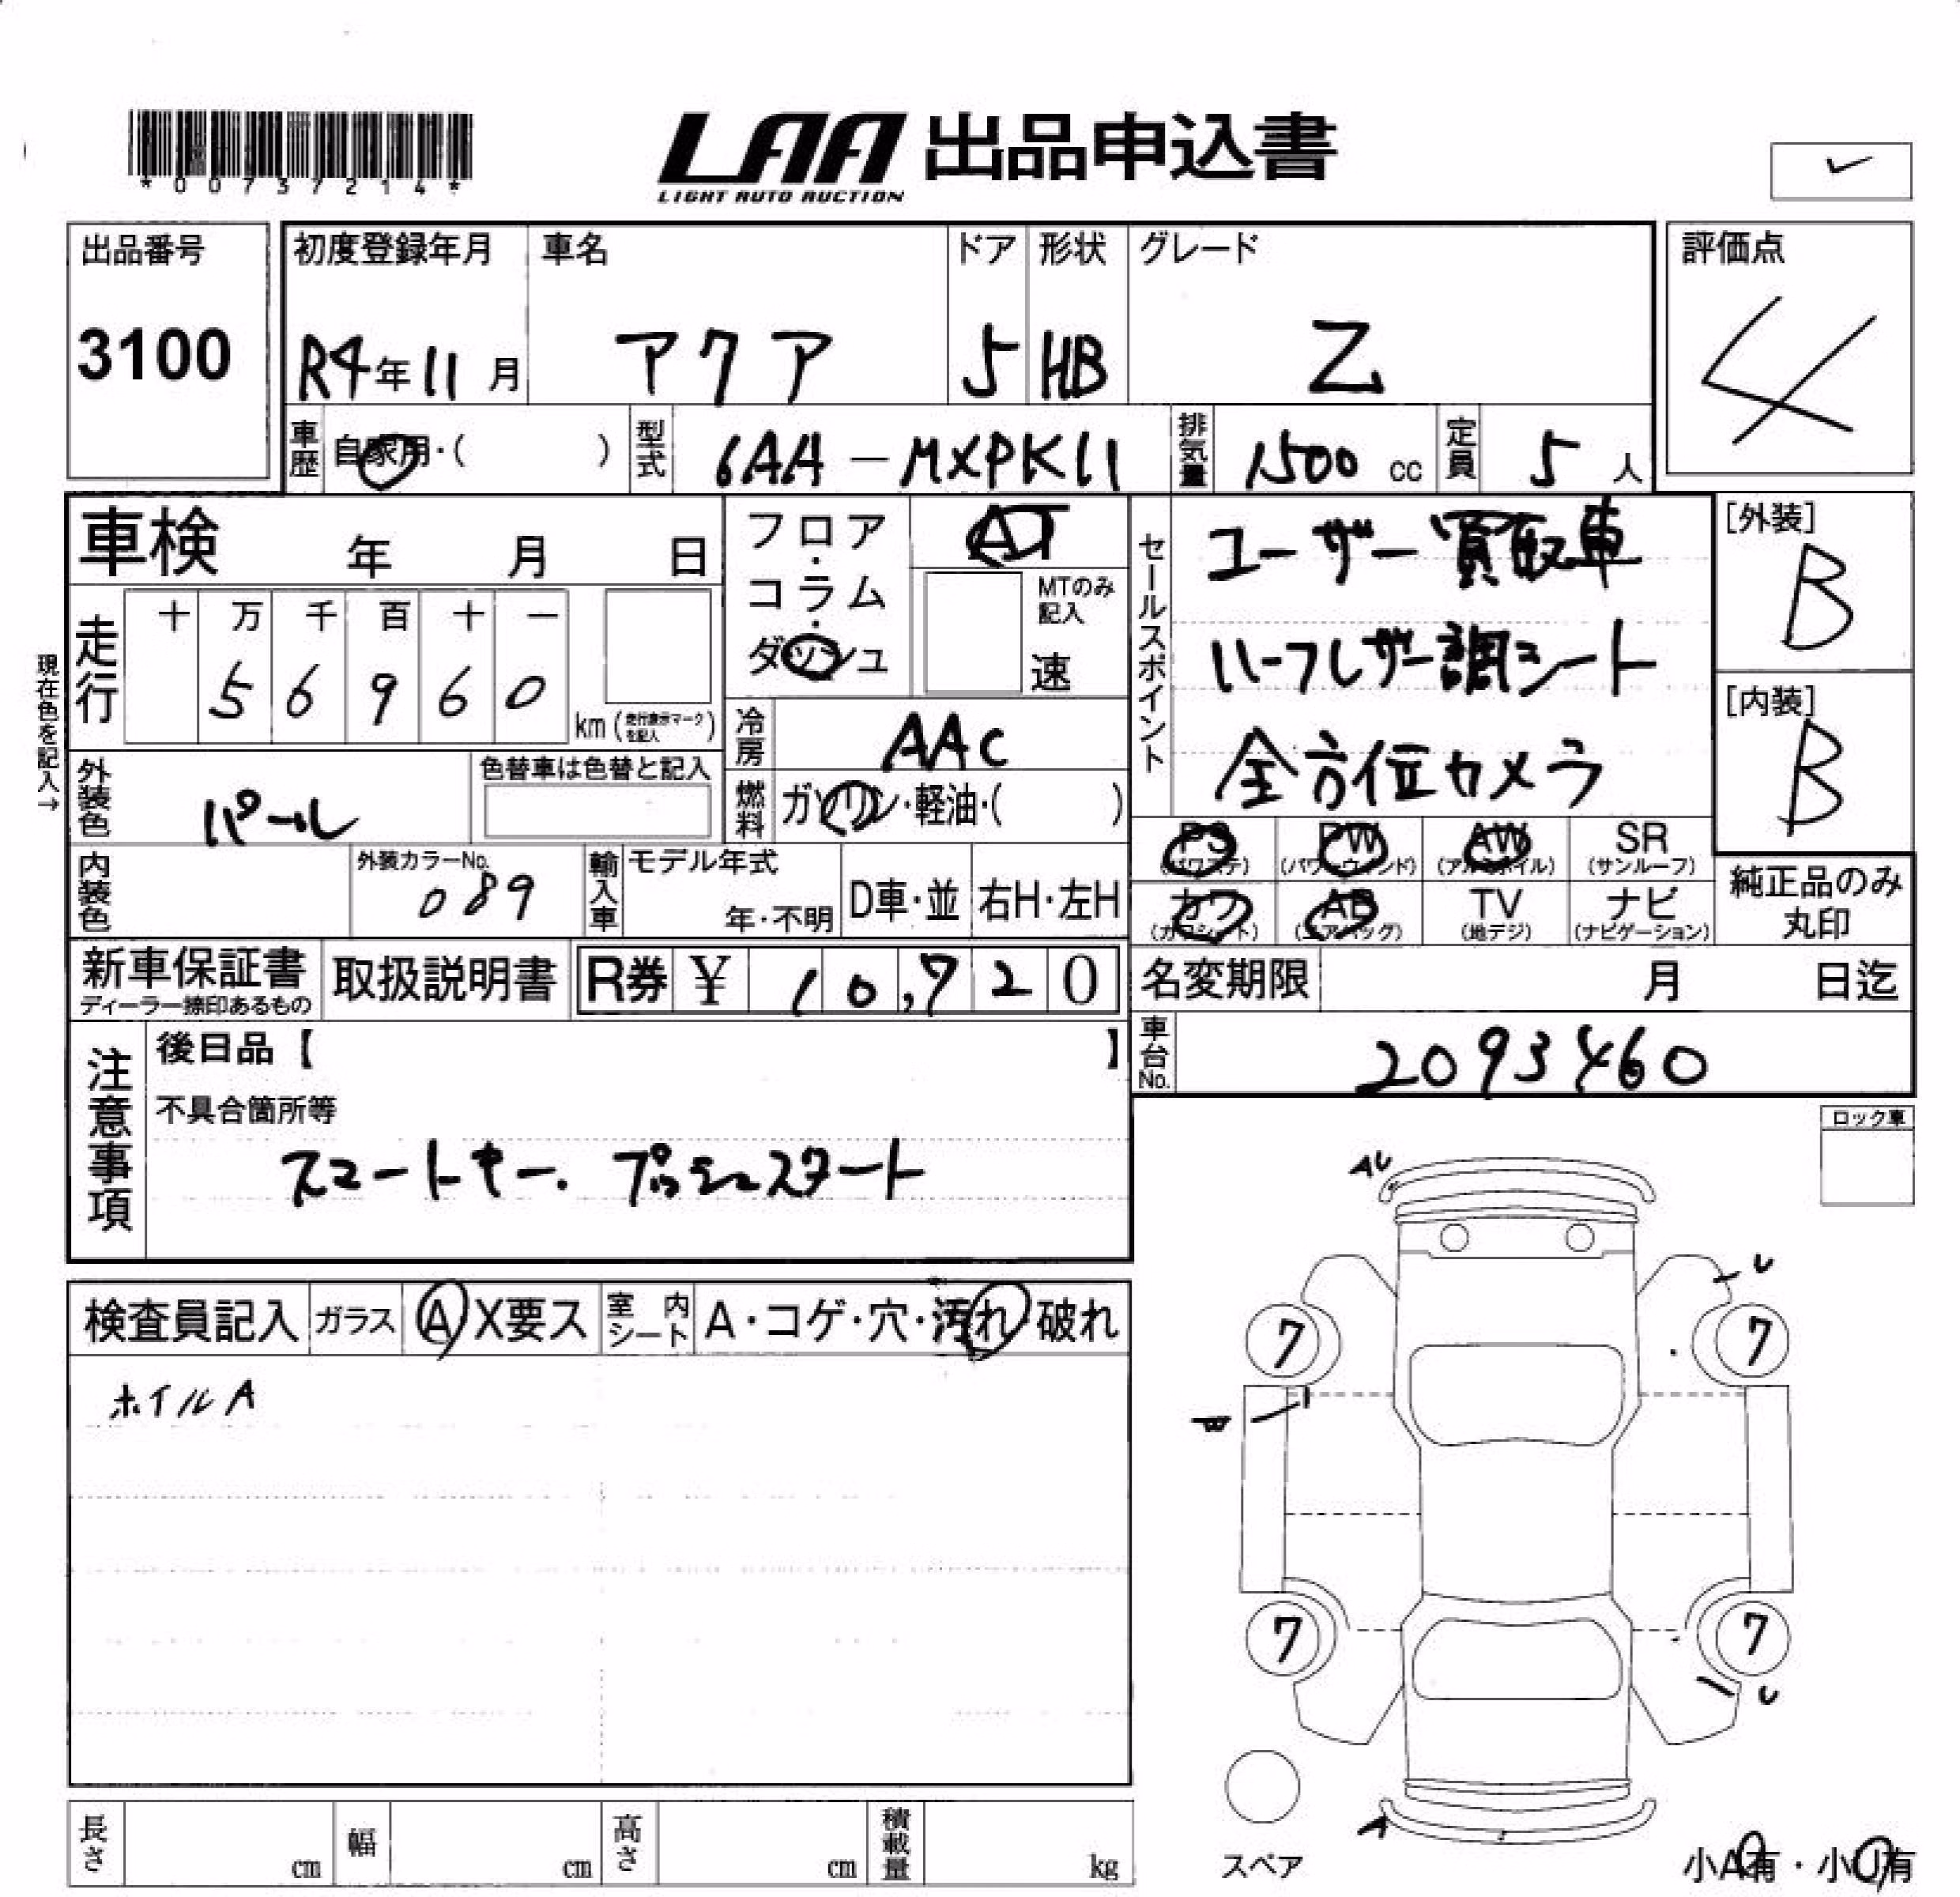 *00737214*
LAA 出品申込書
LIGHT AUTO AUCTION
出品番号
3100
初度登録年月
R4年11月
車名
アクア
ドア
5
形状
HB
グレード
Z
評価点
4
車歴
自家用・( )
型式
6AA-MXPK11
排気量
1500 cc
定員
5 人
車検 年 月 日
フロア・コラム・ダッシュ
AT
MTのみ記入
速
セールスポイント
ユーザー買取車
ハーフレザー調シート
全方位カメラ
[外装]
B
[内装]
B
現在色を記入→
走行
十 万 千 百 十 一
5 6 9 6 0
km (走行表示マークを記入)
冷房
AAC
燃料
ガソリン・軽油・( )
外装色
パール
色替車は色替と記入
内装色
外装カラーNo.
089
輸入車
モデル年式
年・不明
D車・並
右H・左H
PS (パワステ)
PW (パワーウィンド)
AW (アルミホイル)
SR (サンルーフ)
カワ (カワシート)
AB (エアバッグ)
TV (地デジ)
ナビ (ナビゲーション)
純正品のみ
丸印
新車保証書
ディーラー捺印あるもの
取扱説明書
R券 ¥ 10,720
名変期限 月 日迄
車台No.
2093460
注意事項
後日品【 】
不具合箇所等
スマートキー. プッシュスタート
ロック車
検査員記入
ガラス
A X要ス
室内シート
A・コゲ・穴・汚れ 破れ
ホイルA
AU
U
7
7
W
7
7
U
A
スペア
小A有・小U有
長さ cm
幅 cm
高さ cm
積載量 kg